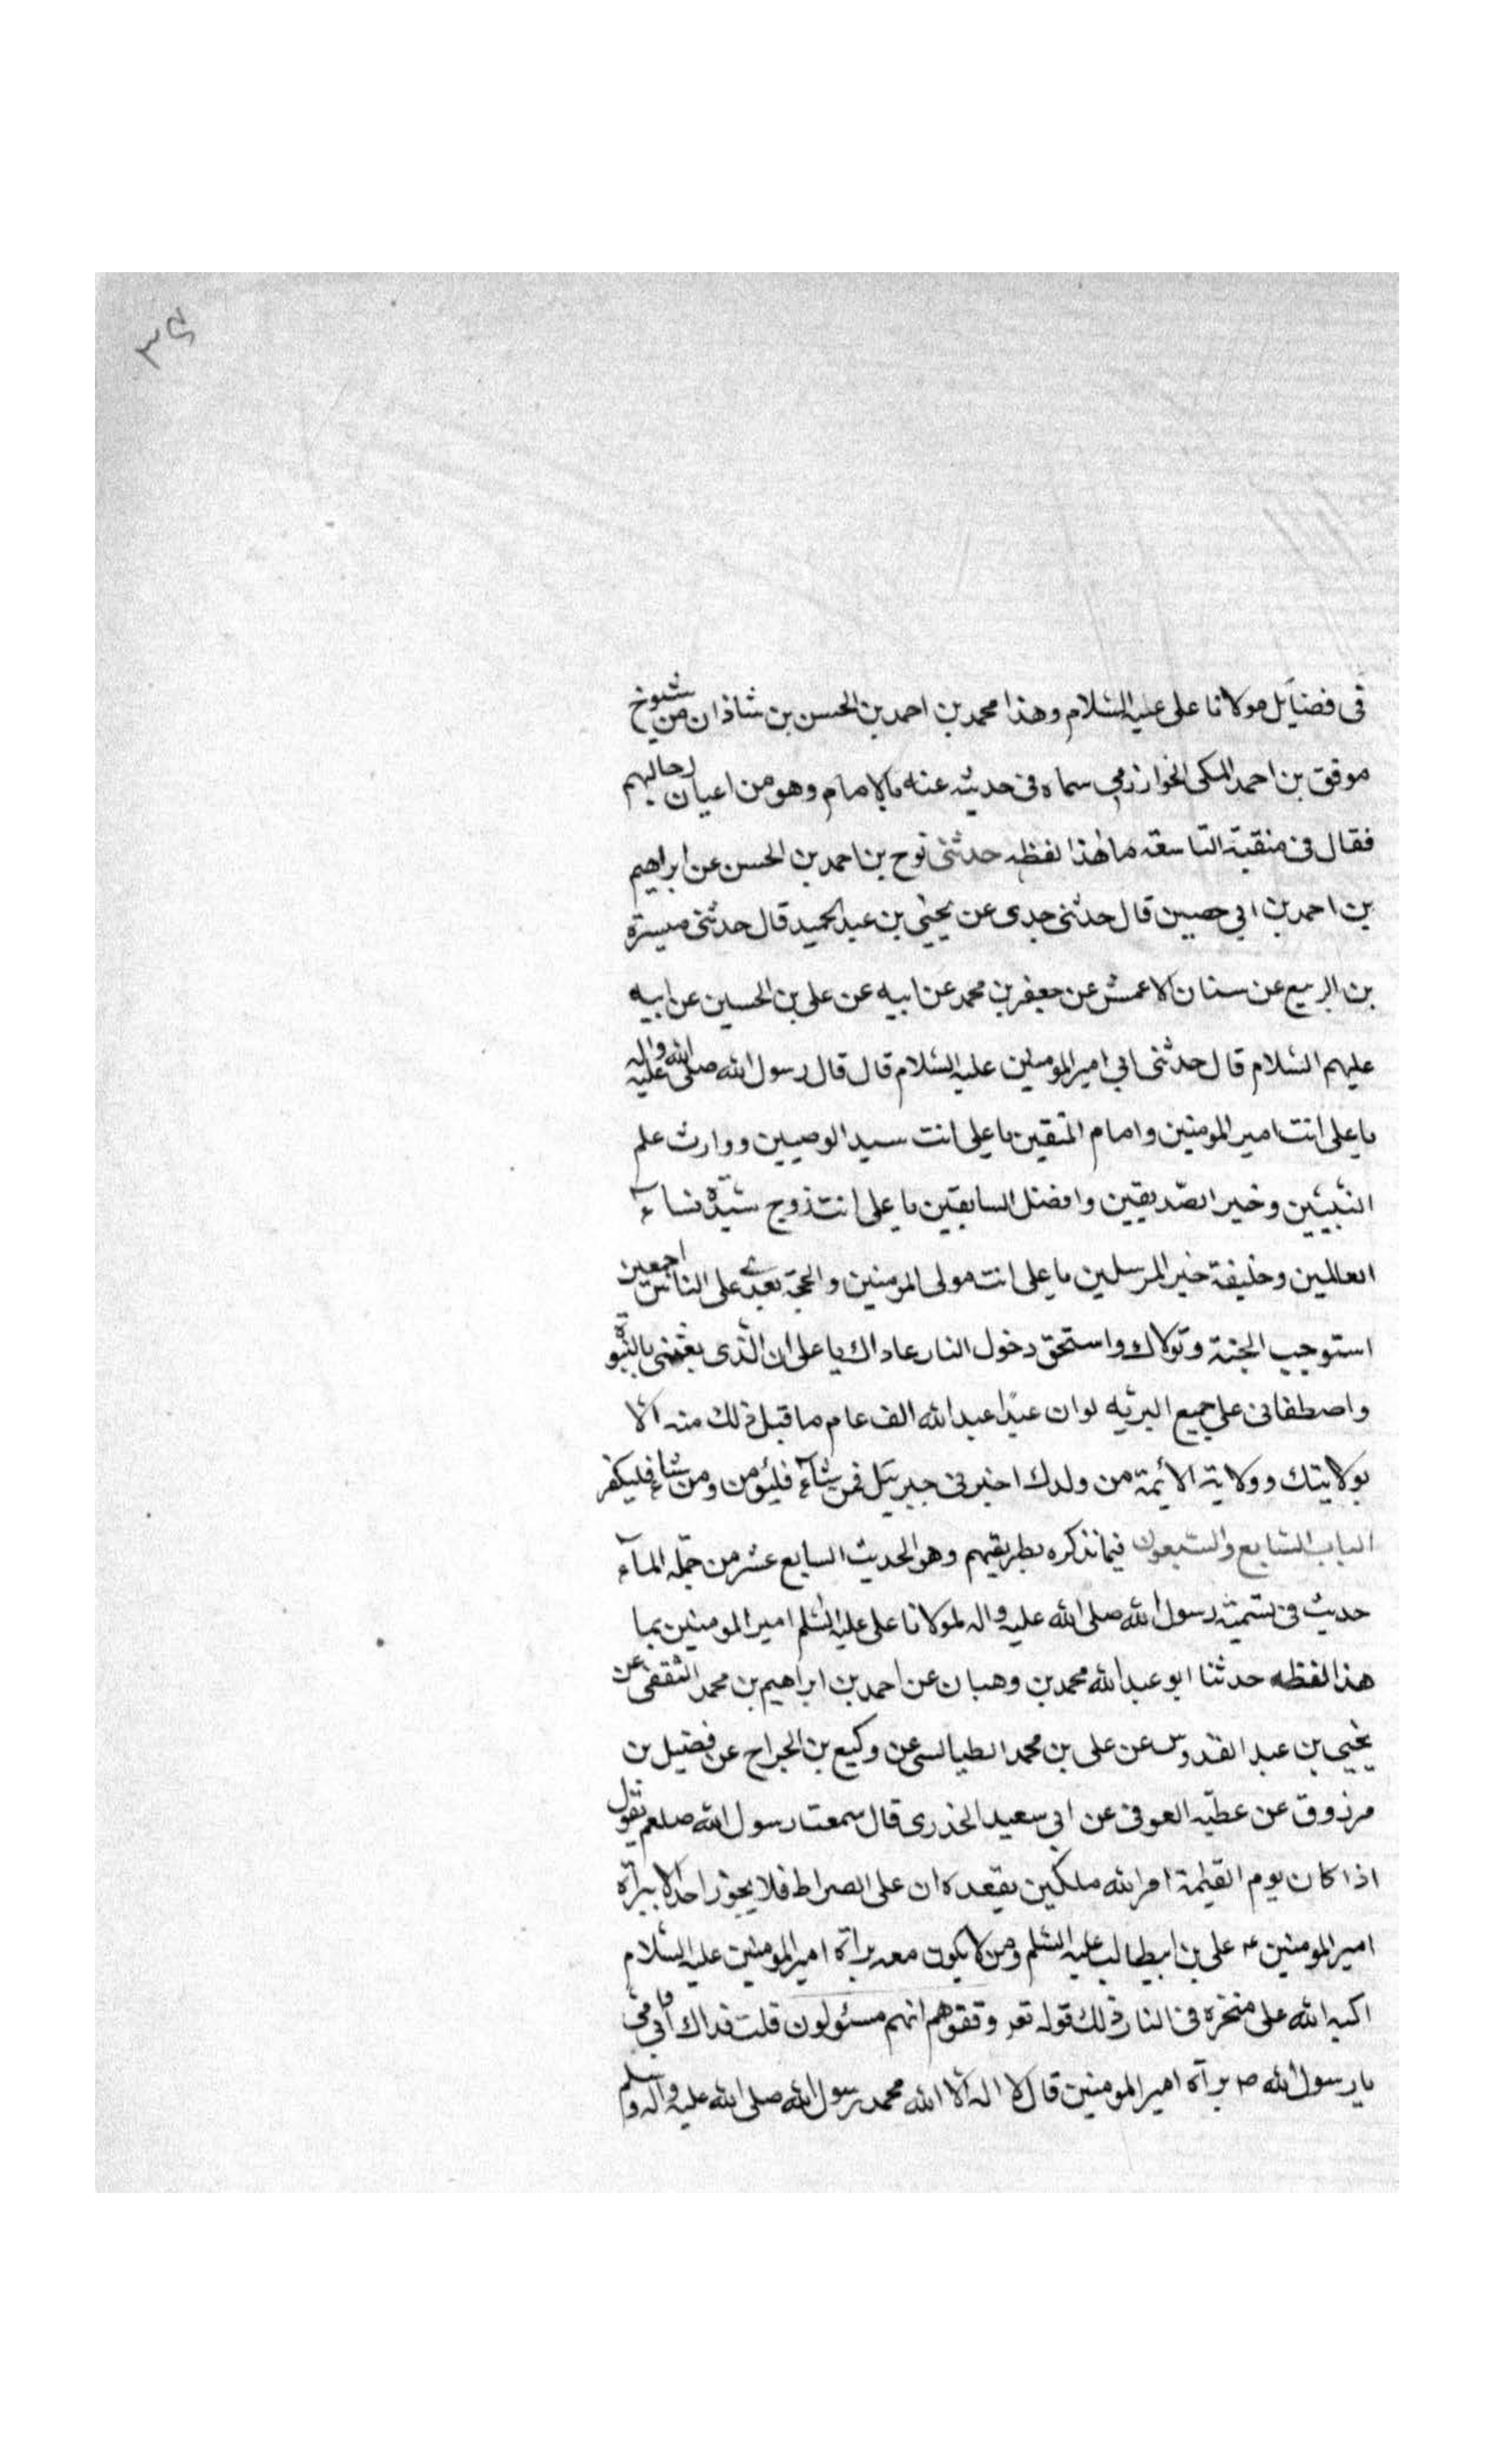 ۳۶
فی فضایل مولانا علی علیه السلام وهذا محمد بن احمد بن الحسن بن شاذان من شیوخ
موفق بن احمد المکی الخوارزمی سماه فی حدیثه عنه بالامام وهو من اعیان رجالهم
فقال فی منقبة التاسعة ما هذا لفظه حدثنی نوح بن احمد بن الحسن عن ابراهیم
بن احمد بن ابی حصین قال حدثنی جدی عن یحیی بن عبد الحمید قال حدثنی میسرة
بن الربیع عن سنان الاعمش عن جعفر بن محمد عن ابیه عن علی بن الحسین عن ابیه
علیهم السلام قال حدثنی ابی امیر المومنین علیه السلام قال قال رسول الله صلی الله علیه واله
یا علی انت امیر المومنین وامام المتقین یا علی انت سید الوصیین ووارث علم
النبیین وخیر الصدیقین وافضل السابقین یا علی انت زوج سیدة نساء
العالمین وخلیفة خیر المرسلین یا علی انت مولی المومنین والحجة بعدی علی الناس اجمعین
استوجب الجنة وتولاك واستحق دخول النار عاداك یا علی ان الذی بعثنی بالنبوة
واصطفانی علی جمیع البریه لو ان عبدا عبد الله الف عام ما قبل ذلك منه الا
بولایتك وولایة الأئمة من ولدك اخبرنی جبرئیل فمن شاء فلیؤمن ومن شاء فلیکفر
الباب السابع والسبعون فیما نذکره بطریقهم وهو الحدیث السابع عشر من جملة المآء
حدیث فی تسمیة رسول الله صلی الله علیه واله لمولانا علی علیه السلم امیر المومنین بما
هذا لفظه حدثنا ابو عبد الله محمد بن وهبان عن احمد بن ابراهیم بن محمد الثقفی عن
یحیی بن عبد القدوس عن علی بن محمد الطیالسی عن وکیع بن الجراح عن فضیل بن
مرزوق عن عطیه العوفی عن ابی سعید الخدری قال سمعت رسول الله صلعم یقول
اذا کان یوم القیمة امر الله ملکین یقعدان علی الصراط فلا یجوز احد الا ببرآة
امیر المومنین علی بن ابیطالب علیه السلم ومن لا یکون معه برآة امیر المومنین علیه السلام
اکبه الله علی منخره فی النار ذلك قوله تعر وقفوهم انهم مسئولون قلت فداك ابی وامی
یا رسول الله ص برآة امیر المومنین قال لا اله الا الله محمد رسول الله صلی الله علیه واله وسلم